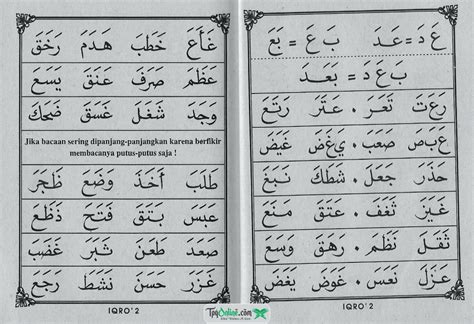 عَ دَ = عَـدَ   بَ عَ = بَعَ
بَ عَ دَ = بَعَدَ
رَتَعَ عَتَرَ . تَعَرَ رَعَتَ
غَيَضَ يَغَضَ . صَعَبَ عَبَصَ
شَطَكَ . جَعَلَ حَذَرَ
مَنَعَ عَتَقَ . ثَغَفَ غَيَزَ
وَسَعَ رَهَقَ . نَظَمَ ثَقَلَ
يَغَضَ عَوَضَ . نَعَسَ عَزَلَ
IQRO' 2
هَدَمَ خَطَبَ
يَسَعَ عَنَقَ صَرَفَ عَظَمَ
ضَحَكَ غَسَقَ شَغَلَ وَجَدَ
Jika bacaan sering dipanjang-panjangkan karena berfikir
membacanya putus-putus saja !
ظَجَرَ وَضَعَ أَخَذَ طَلَبَ
ذَظَعَ فَتَحَ بَتَقَ عَبَسَ
غَضَبَ ثَبَرَ طَعَنَ صَعَدَ
رَجَعَ نَشَطَ حَسَنَ غَزَرَ
IQRO' 2
TpqOnline.com